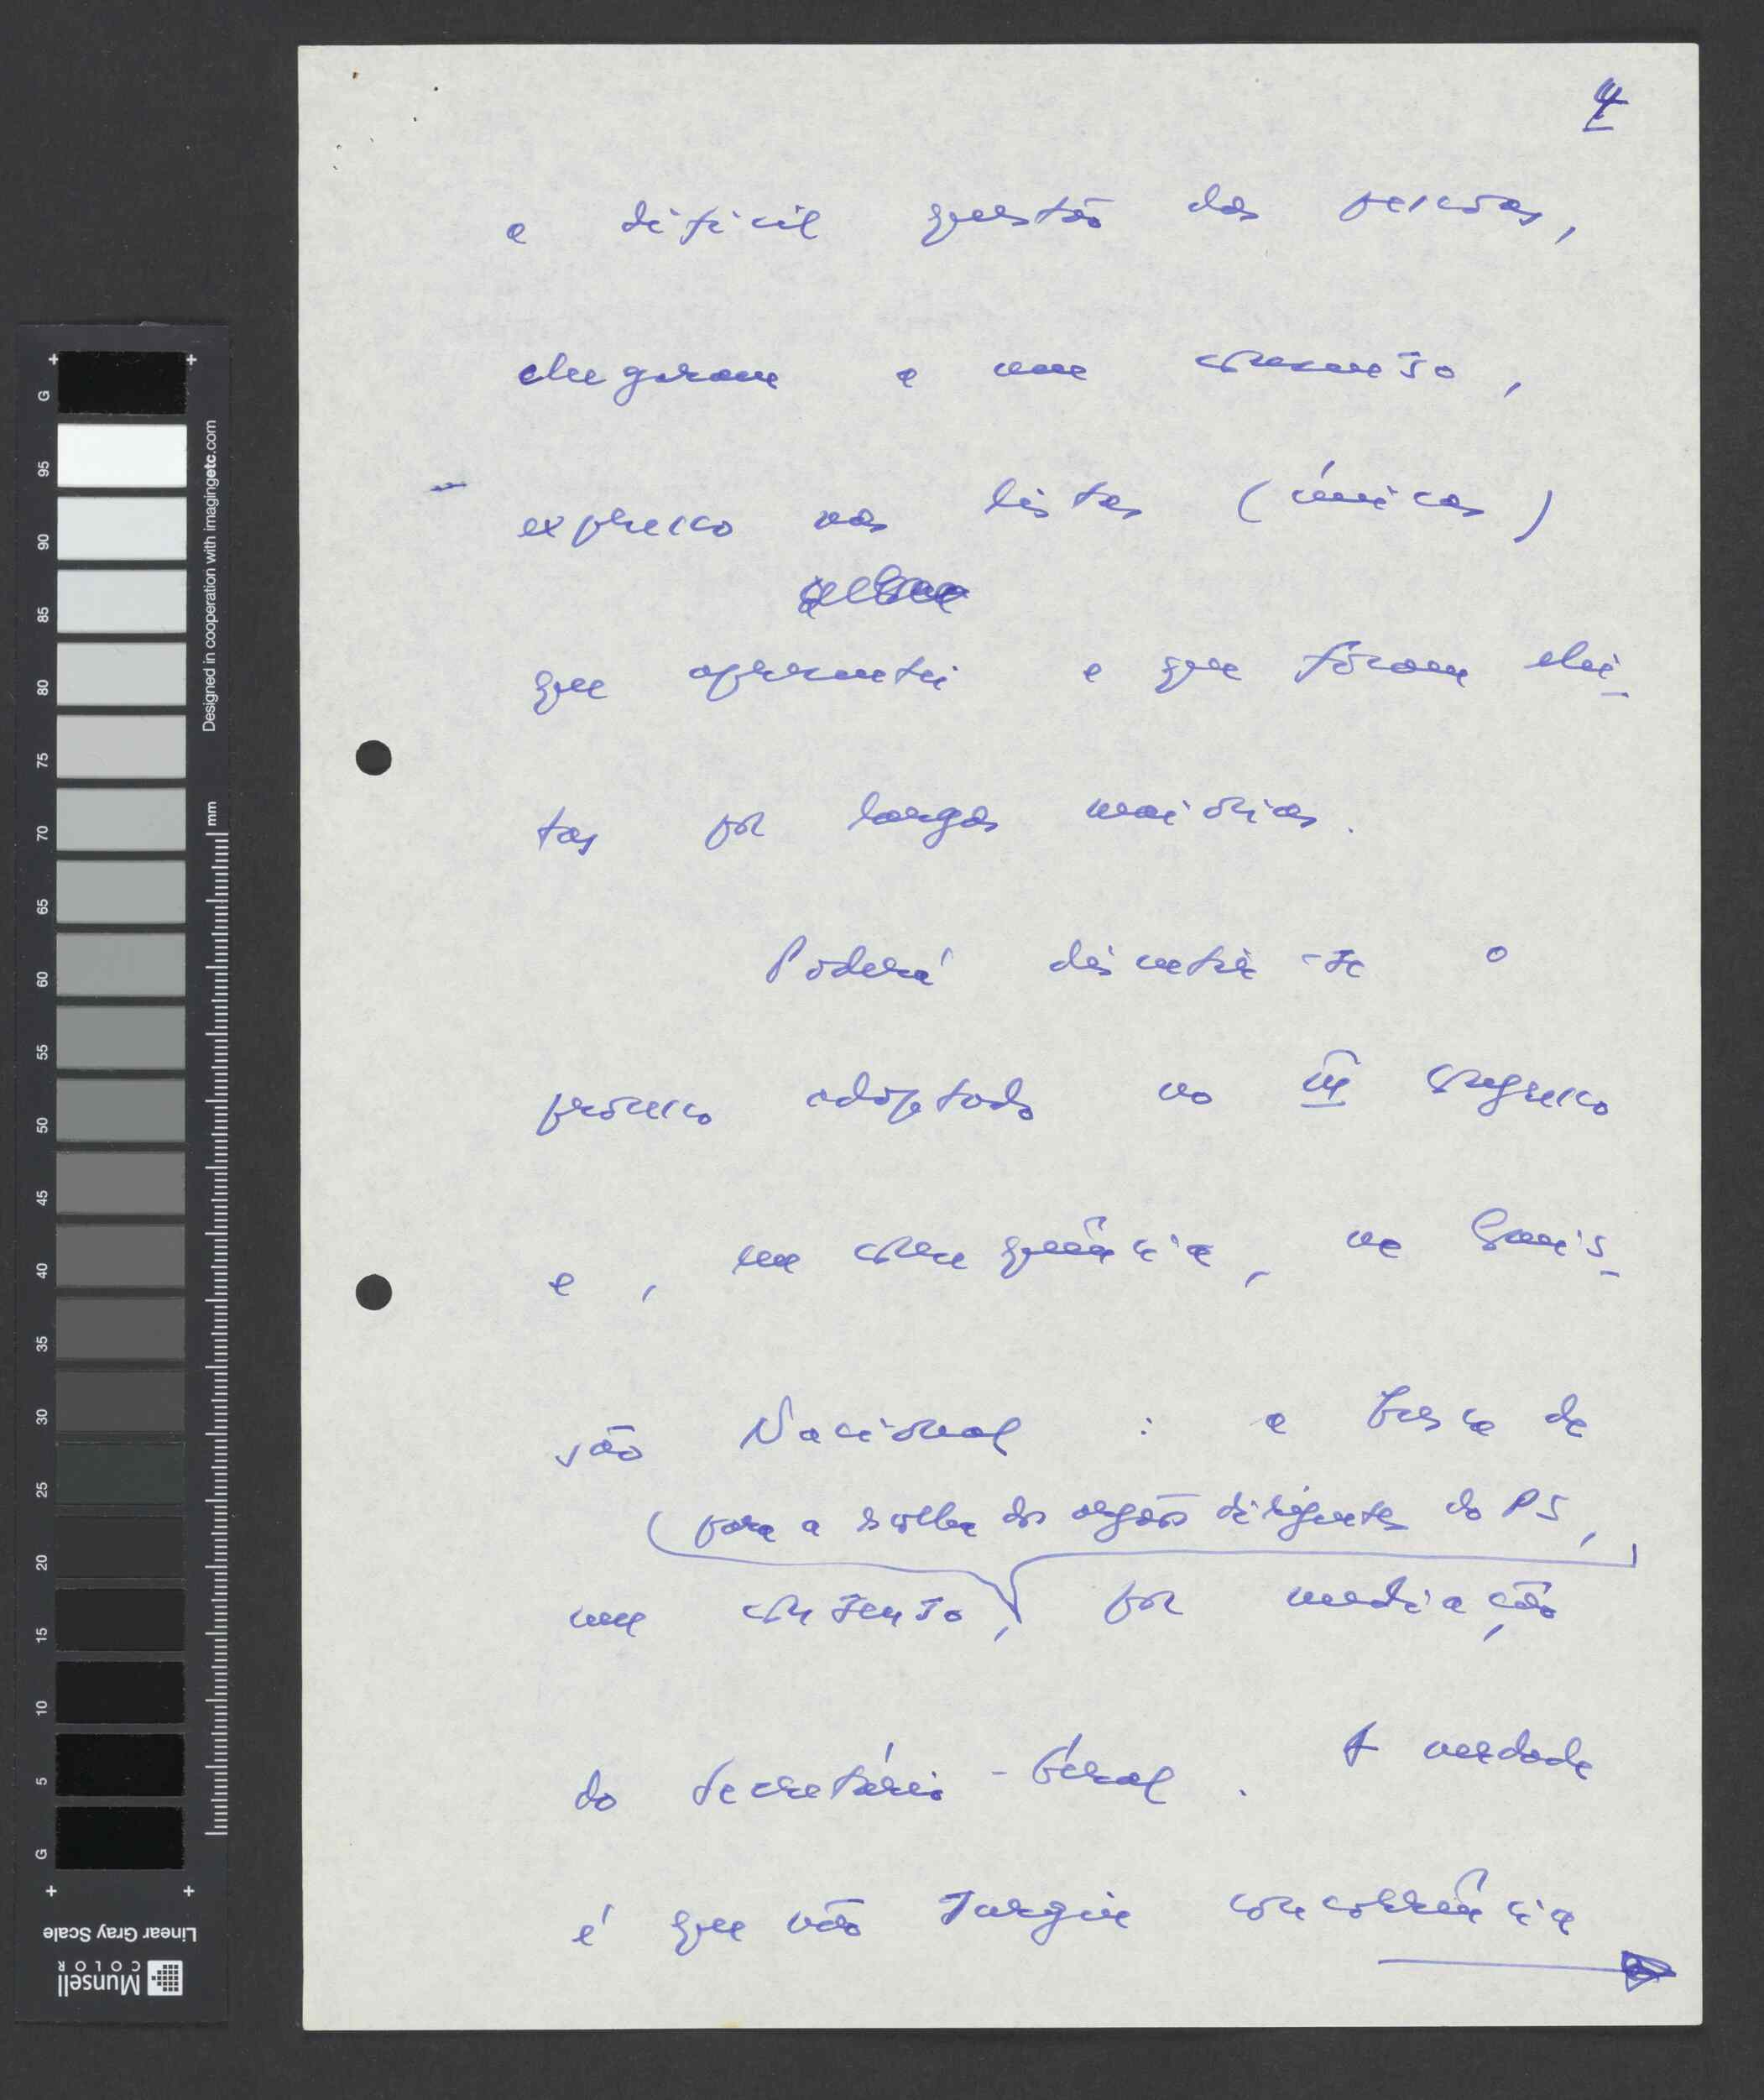 4
a difícil questão das pessoas,
chegaram a um consenso,
expresso nas listas (únicas)
que apresentei e que fôram elei-
tas por largas maiorias.
Poderá discutir-se o
processo adoptado no III Congresso
e, em consequência, na Comis-
são Nacional: a busca de
(para a escolha dos orgãos dirigentes do PS,
um consenso, por mediação
do Secretário-Geral. A verdade
é que não surgiu concorrência
G 95 90 85 80 75 70 65 60 55 50 45 40 35 30 25 20 15 10 5 G
Designed in cooperation with imagingetc.com
mm
Linear Gray Scale
Munsell
COLOR